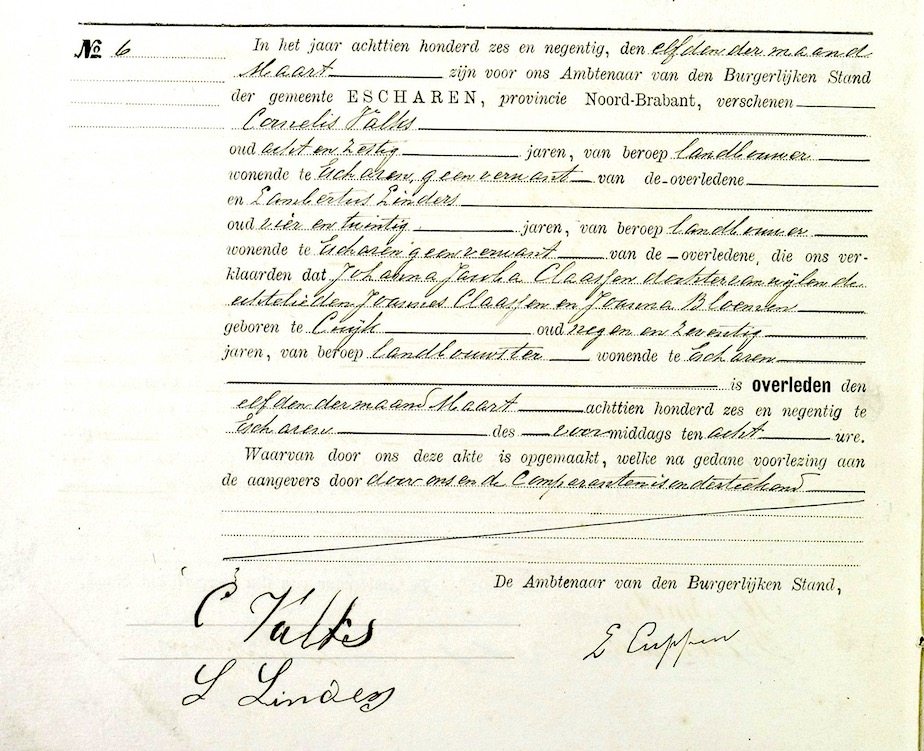 No 6
In het jaar achttien honderd zes en negentig, den elfden der maand
Maart zijn voor ons Ambtenaar van den Burgerlijken Stand
der gemeente ESCHAREN, provincie Noord-Brabant, verschenen
Cornelis Valks
oud acht en zestig jaren, van beroep landbouwer
wonende te Escharen, geen verwant van de overledene
en Lambertus Linders
oud vier en twintig jaren, van beroep landbouwer
wonende te Escharen geen verwant van de overledene, die ons ver-
klaarden dat Johanna Jacoba Claassen dochter van wijlen de
echtelieden Joannes Claassen en Joanna Bloemen
geboren te Cuijk oud negen en zeventig
jaren, van beroep landbouwster wonende te Escharen
is overleden den
elfden der maand Maart achttien honderd zes en negentig te
Escharen des voormiddags ten acht ure.
Waarvan door ons deze akte is opgemaakt, welke na gedane voorlezing aan
de aangevers door door ons en de Comparanten is onderteekend
De Ambtenaar van den Burgerlijken Stand,
C Valks
E Cuppen
L Linders